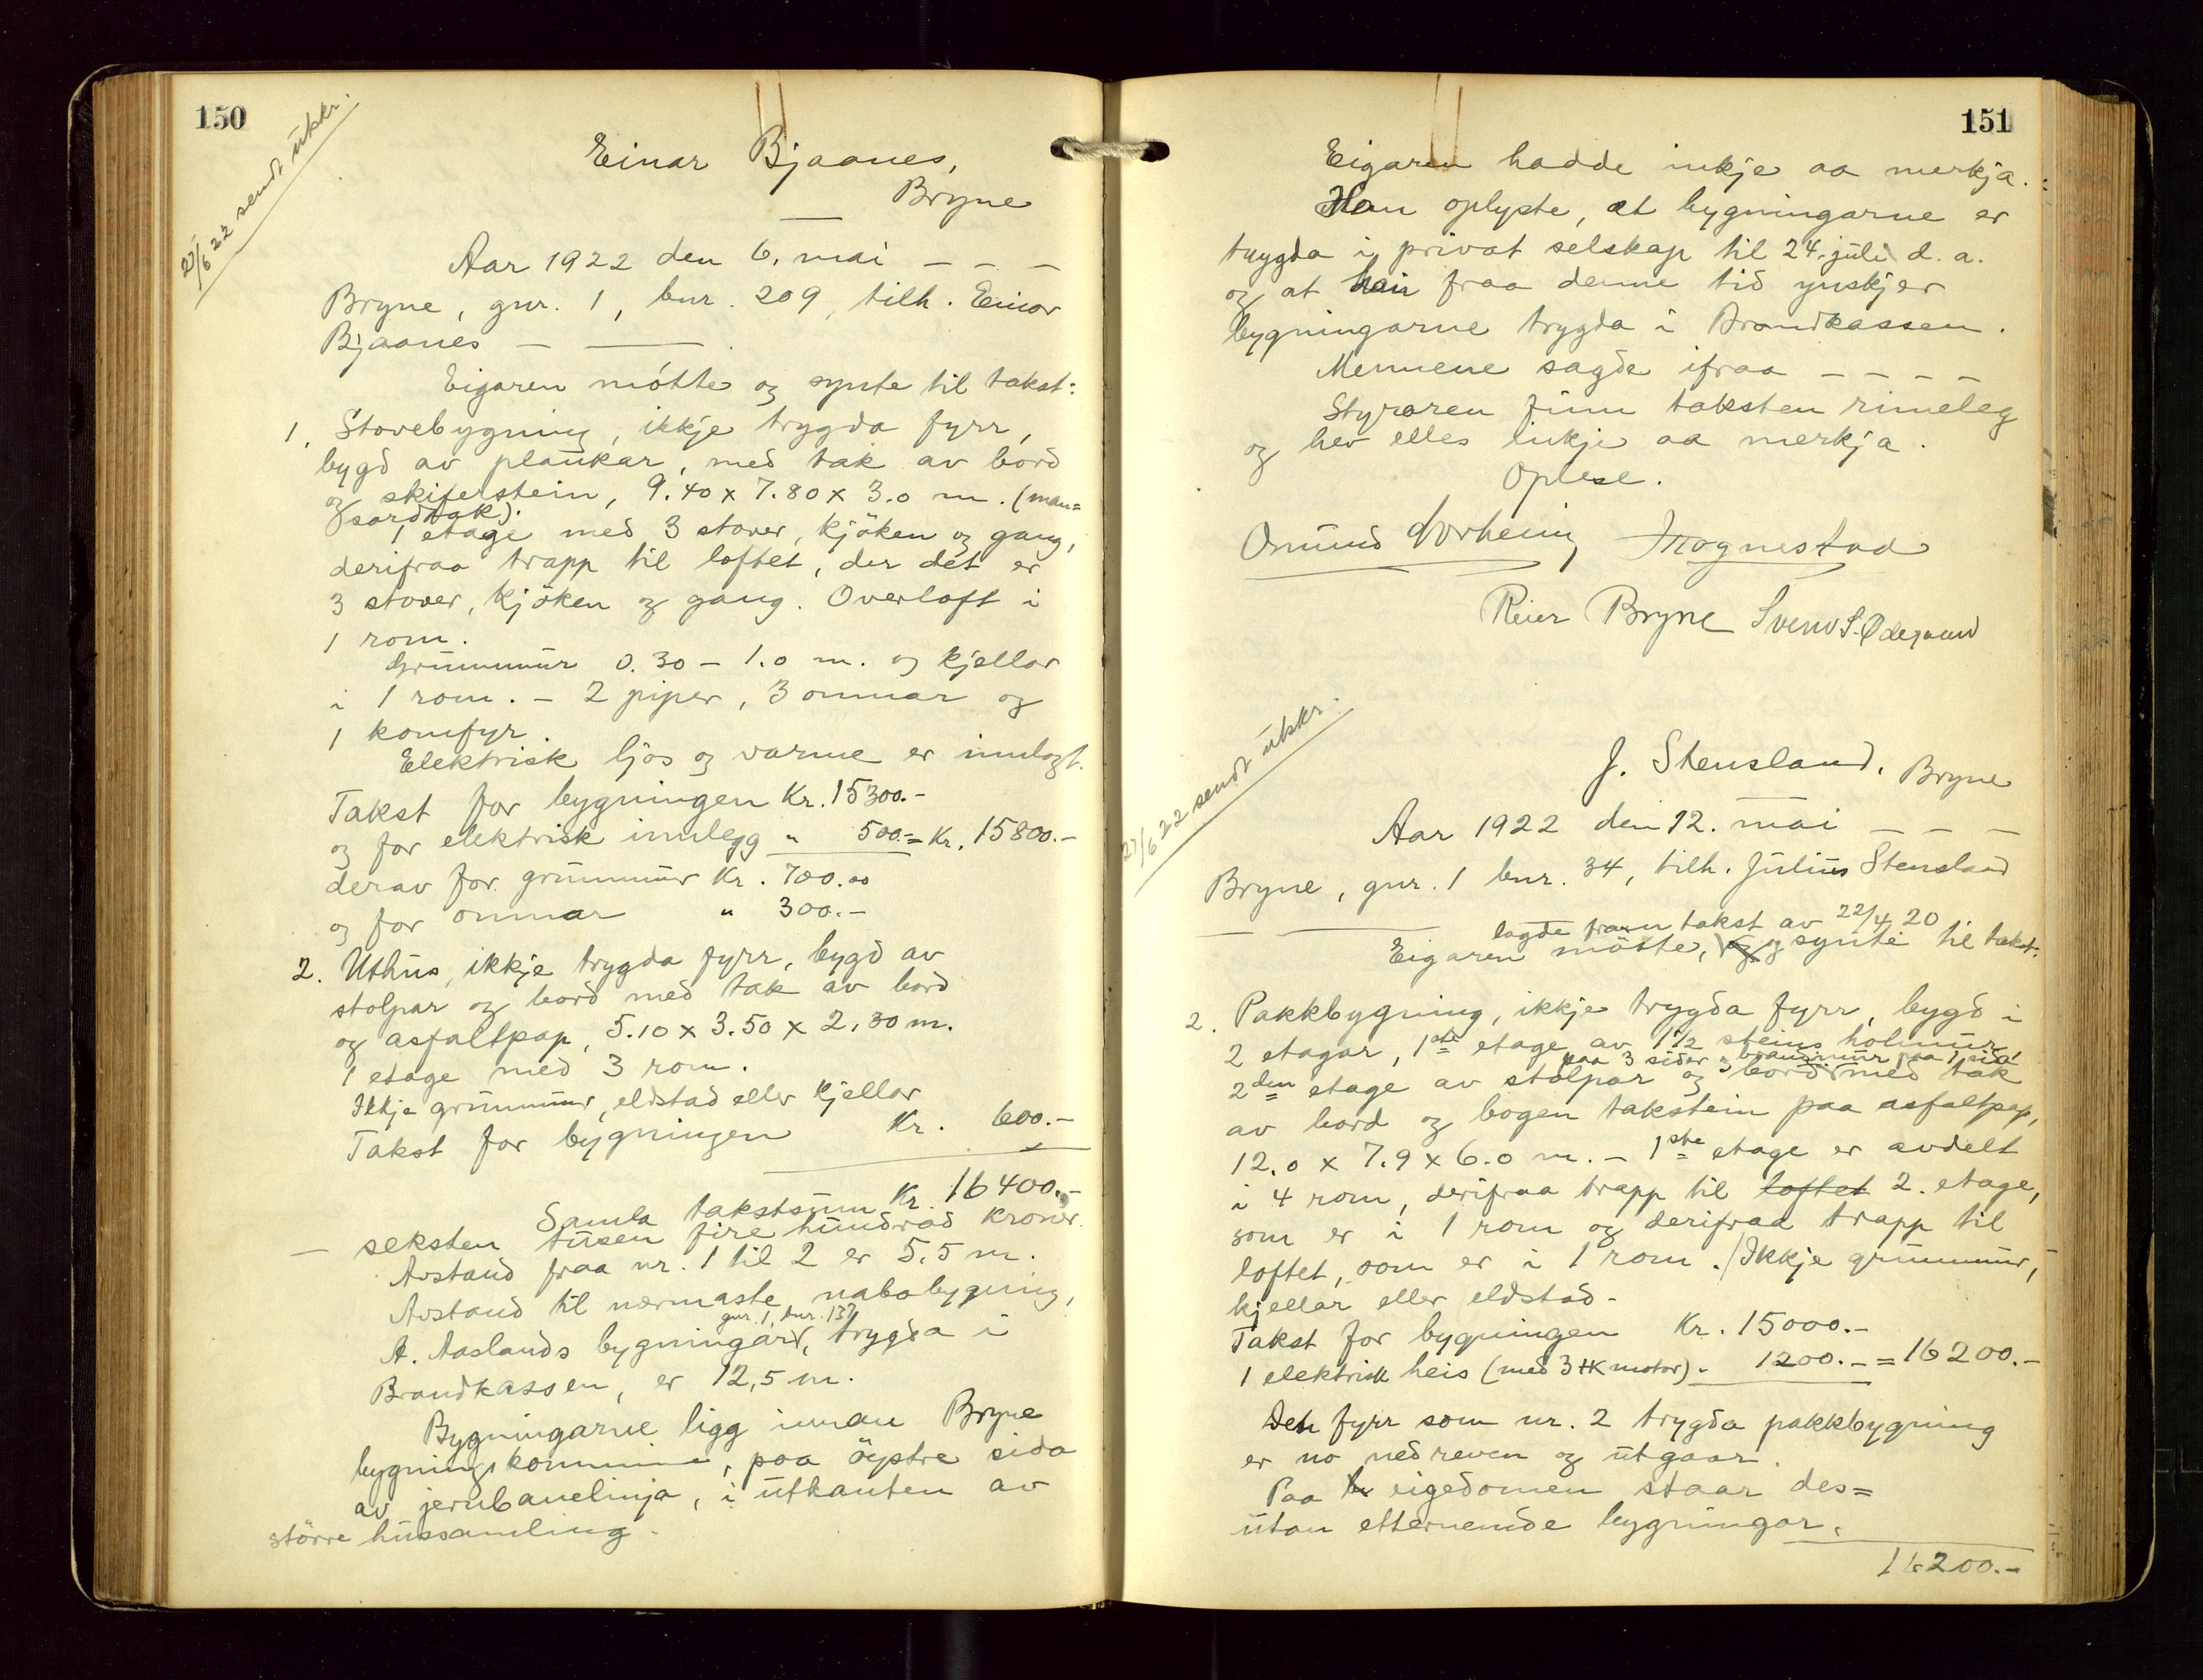 150
27/6 22 sendt utskr.
Einar Bjaanes,
Bryne
Aar 1922 den 6. mai — — —
Bryne, gnr. 1, bnr. 209, tilh. Einar
Bjaanes — ———
Eigaren mötte og synte til takst:
1. Stovebygning, ikkje trygda fyrr,
bygd av plankar, med tak av bord
og skiferstein, 9.40 x 7.80 x 3.0 m. (man=
sardtak).
1 etage med 3 stover, kjöken og gang,
derifraa trapp til loftet, der det er
3 stover, kjöken og gang. Overloft i
1 rom.
Grunnmur 0.30 — 1.0 m. og kjellar
i 1 rom. — 2 piper, 3 omnar og
1 komfyr.
Elektrisk ljos og varme er innlagt.
Takst for bygningen Kr. 15300.-
og for elektrisk innlegg " 500.- = Kr. 15800.-
derav for grunnmur Kr. 700.00
og for omnar " 300.-
2. Uthus, ikkje trygda fyrr, bygd av
stolpar og bord med tak av bord
og asfaltpap, 5.10 x 3.50 x 2.30 m.
1 etage med 3 rom.
Ikkje grunnmur, eldstad eller kjellar
Takst for bygningen Kr. 600.-
Samla takstsum Kr. 16400.-
— seksten tusen fire hundrad kroner.
Avstand fraa nr. 1 til 2 er 5.5 m.
Avstand til nærmaste nabobygning,
gnr. 1, bnr. 137
A. Aaslands bygningar, trygda i
Brandkassen, er 12,5 m.
Bygningarne ligg innan Bryne
bygningskommune, paa öystre sida
av jernbanelinja, i utkanten av
större hussamling.
151
Eigaren hadde inkje aa merkja.
Han oplyste, at bygningarne er
trygda i privat selskap til 24. juli d. a.
og at han fraa denne tid ynskjer
bygningarne trygda i Brandkassen.
Mennene sagde ifraa — — — —
Styraren finn taksten rimeleg
og hev elles inkje aa merkja.
Oplese.
Omund Norheim Mognestad
Reier Bryne Svend S. Ødegaard
27/6 22 sendt utskr.
J. Stensland, Bryne
Aar 1922 den 12. mai — — —
Bryne, gnr. 1 bnr. 34, tilh. Julius Stensland
— ———
lagde fram takst av 22/4 20
Eigaren mötte, og synte til takst:
2. Pakkbygning, ikkje trygda fyrr, bygd i
2 etagar, 1ste etage av 1 1/2 steins holmur,
paa 3 sider og brandmur paa 1 sida
2den etage av stolpar og bord med tak
av bord og bogen takstein paa asfaltpap,
12.0 x 7.9 x 6.0 m. — 1ste etage er avdelt
i 4 rom, derifraa trapp til loftet 2. etage,
som er i 1 rom og derifraa trapp til
loftet, som er i 1 rom. / Ikkje grunnmur,
kjellar eller eldstad.
Takst for bygningen Kr. 15000.-
1 elektrisk heis (med 3 HK motor) " 1200.- = 16200.-
Den fyrr som nr. 2 trygda pakkbygning
er no nedreven og utgaar.
Paa eigedomen staar des=
utan etternemde bygningar.
16200.-